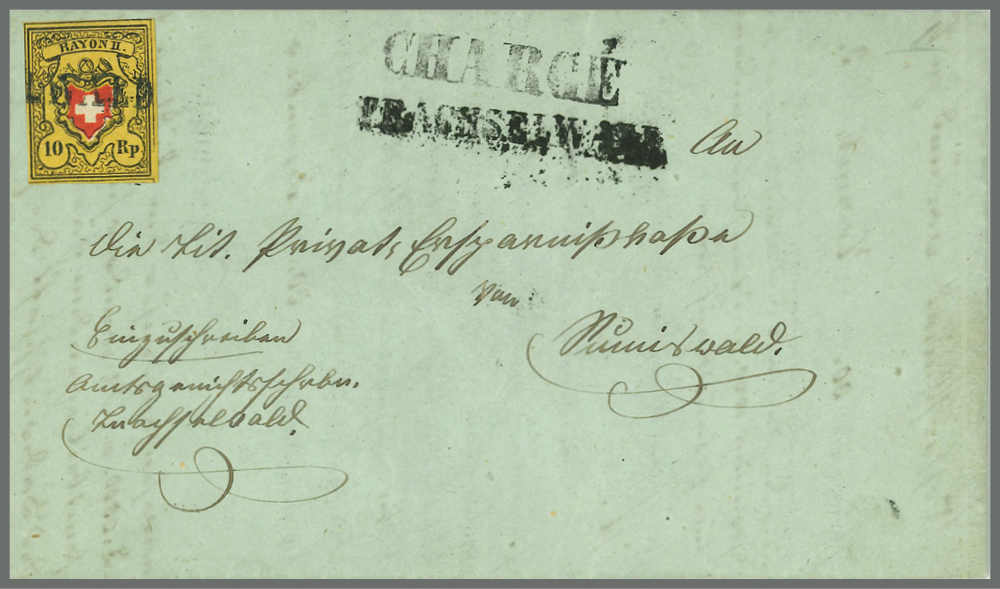 RAYON II.
10 Rp
CHARGÉ
TRACHSELWALD
An
die Tit. Privat, Ersparnißkaße
von
Sumiswald.
Einzuschreiben
Amtsgerichtsschrbr.
Trachselwald.